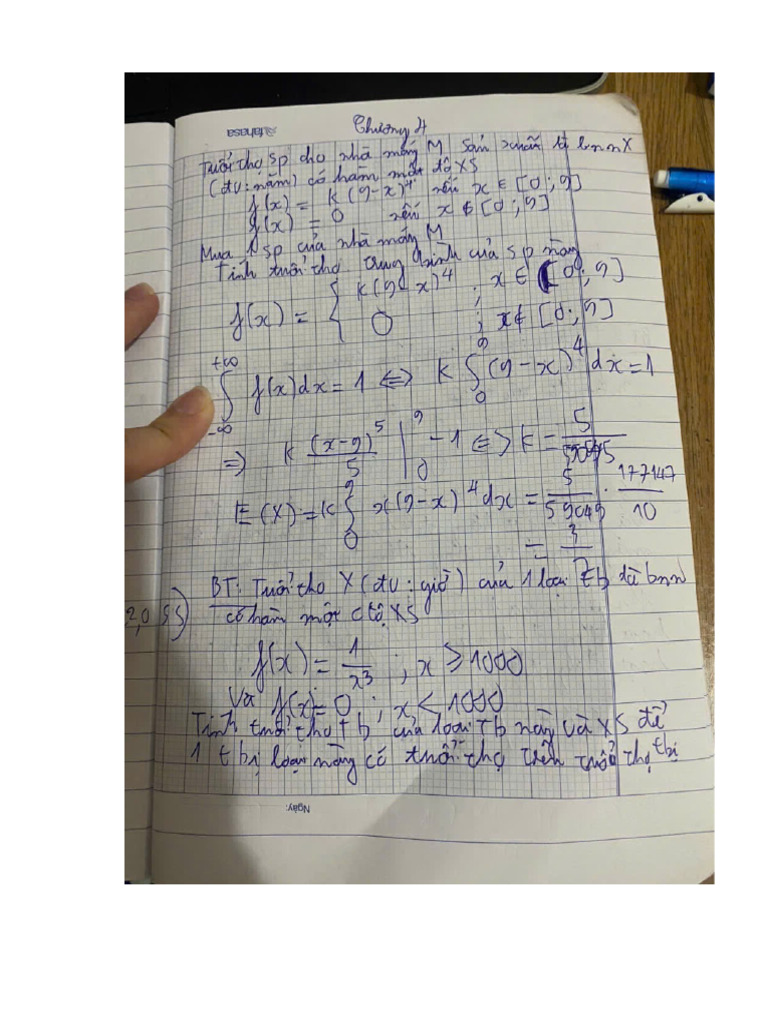 Fahasa
Chương 4
Tuổi thọ sp cho nhà máy M sản xuất là bnn X
(đv: năm) có hàm mật độ XS
f(x) = k(9-x)⁴ nếu x ∈ [0;9]
f(x) = 0 nếu x ∉ [0;9]
Mua 1 sp của nhà máy M
Tính tuổi thọ trung bình của sp này
f(x) = { k(9-x)⁴ ; x ∈ [0;9]
0 ; x ∉ [0;9]
∫_{-∞}^{+∞} f(x)dx = 1 ⇔ k ∫_0^9 (9-x)⁴ dx = 1
⇒ k (x-9)⁵/5 |_0^9 - 1 ⇔ k = 5/
E(X) = k ∫_0^9 x(9-x)⁴ dx = 5/59049 . 177147/10
= 3/
BT: Tuổi thọ X (đv: giờ) của 1 loại tb là bnn
2,0 55)
có hàm mật độ XS
f(x) = 1/x³ ; x ≥ 1000
Và f(x) = 0 ; x < 1000
Tính tuổi thọ tb của loại TB này và XS để
1 tbị loại này có tuổi thọ trên tuổi thọ tbị
Ngày: